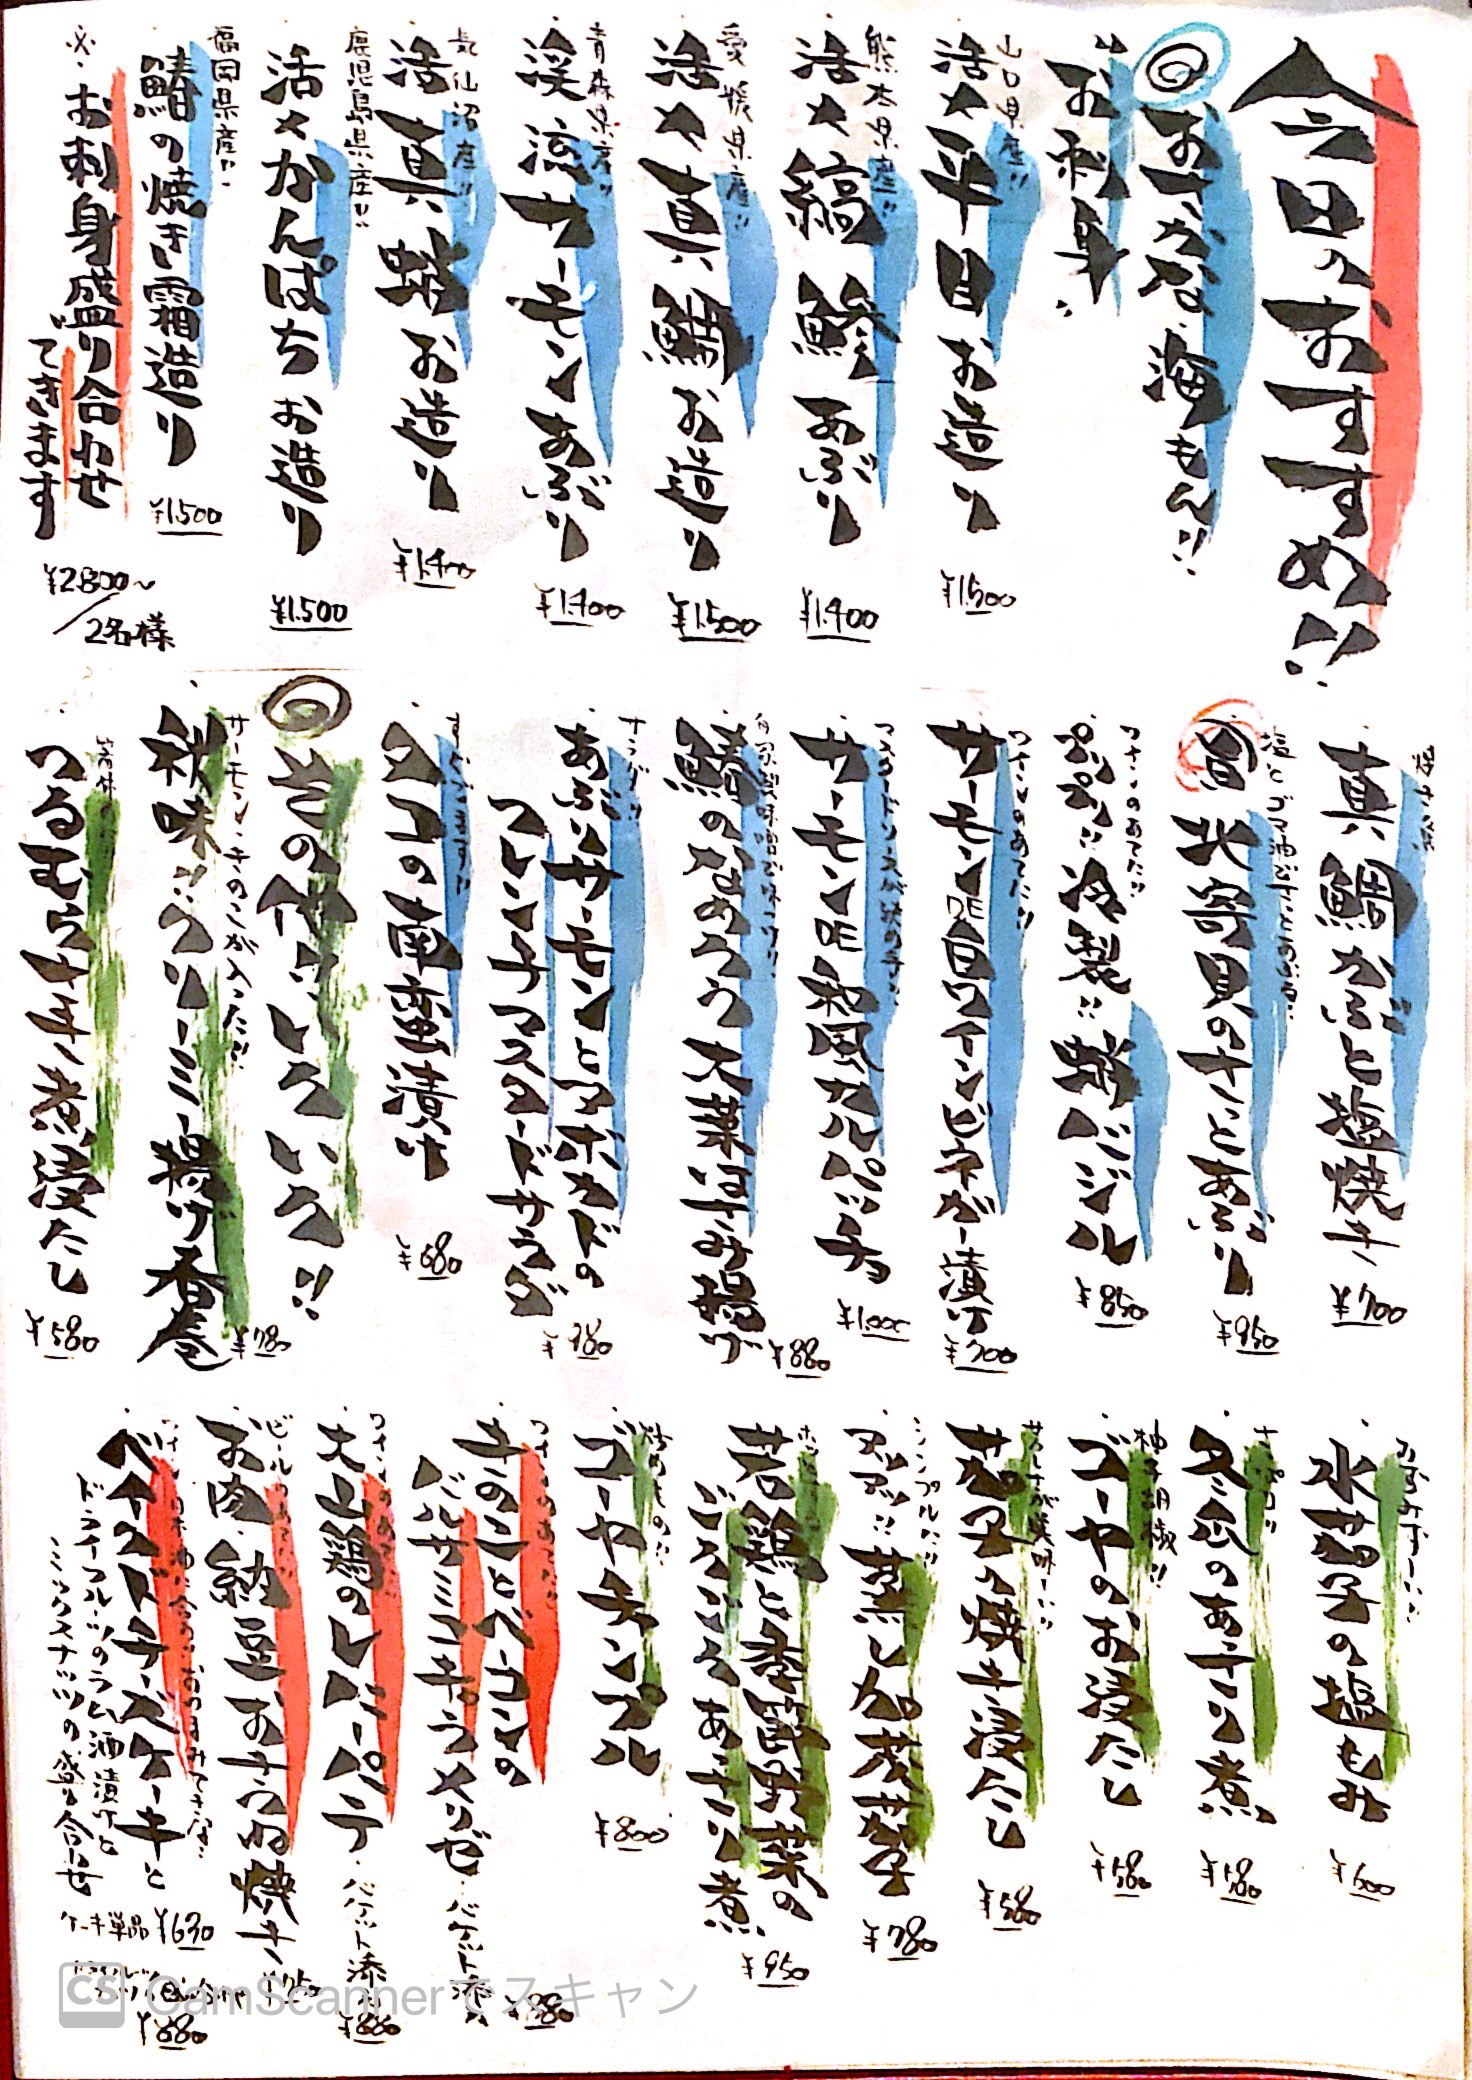 今日のおすすめ!!
おさかな・海もん!!
お刺身
山口県産!!
活〆平目お造り
¥1.500
熊本県産!!
活〆縞鯵あぶり
¥1.400
愛媛県産!!
活〆真鯛お造り
¥1.500
青森県産!!
渓流サーモンあぶり
¥1.400
気仙沼産!!
活真蛸お造り
¥1.400
鹿児島県産!!
活〆かんぱちお造り
¥1.500
福岡県産!!
鰆の焼き霜造り
¥1.500
※お刺身盛り合わせ
できます
¥2.800〜
2名様
真鯛かぶと塩焼き
¥700
北寄貝のナンとあぶり
¥950
ワインのあてに!!
冷製!!蛸バジル
¥850
ワインのあてに!!
サーモンDE白ワインビネガー漬け
¥700
サーモンDE和風カルパッチョ
¥1.000
鰆のなめろう大葉はさみ揚げ
¥880
サラダ!!
あぶりサーモンとアボカドの
フレンチマスタードサラダ
¥980
タコの南蛮漬け
¥680
その他いろいろ!!
サーモン・キのこが入った!!
秋味クリーミー揚げ春巻
¥780
つるむらさき煮浸たし
¥580
水茄子の塩もみ
¥600
冬瓜のあっさり煮
¥580
柚子胡椒!!
ゴーヤのお浸たし
¥580
茄子の焼き浸たし
¥580
シンプルに!!
アツアツ!!蒸し加茂茄子
¥780
若鶏と香味野菜の
ごろごろあっさり煮
¥950
炒めもの!!
ゴーヤチャンプル
¥800
ワインのあてに!!
きのことベーコンの
バルサミコキャラメリゼ・バケット添え
¥880
ワインのあてに!!
大山鶏のレバーパテ・バケット添え
¥880
ビールのあてに!!
お肉・納豆おきつね焼き
¥750
ベイクドチーズケーキと
ドライフルーツのラム酒漬けと
ミックスナッツの盛り合わせ
ケーキ単品 ¥630
¥880
CS CamScannerでスキャン